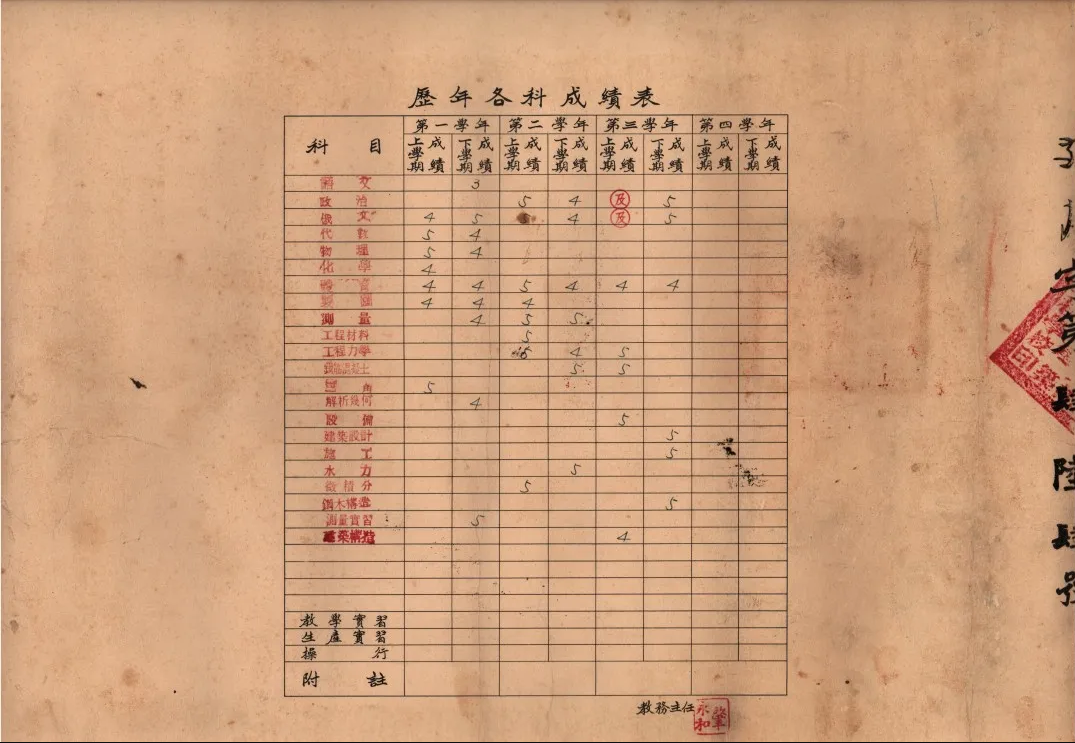 歷年各科成績表
科目 第一學年 第二學年 第三學年 第四學年
上學期成績 下學期成績 上學期成績 下學期成績 上學期成績 下學期成績 上學期成績 下學期成績
語文 3
政治 5 4 及 5
俄文 4 5 4 及 5
代數 5 4
物理 5 4
化學 4
體育 4 4 5 4 4 4
製圖 4 4 4
測量 4 5 5
工程材料 5
工程力學 5 4 5
鋼筋混凝土 5 5
三角 5
解析幾何 4
設備 5
建築設計 5
施工 5
水力 5
微積分 5
鋼木構造 5
測量實習 5
建築構造 4
教學實習
生產實習
操行
附註
教務主任
永和
字第
肆陸肆號
校印